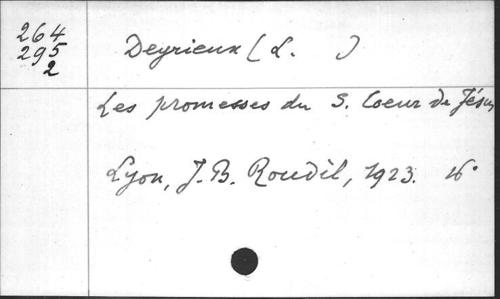 264
295
2
Deyrieux ( L. )
Les promesses du S. Coeur de Jésus
Lyon, J. B. Roudil, 1923. 16°